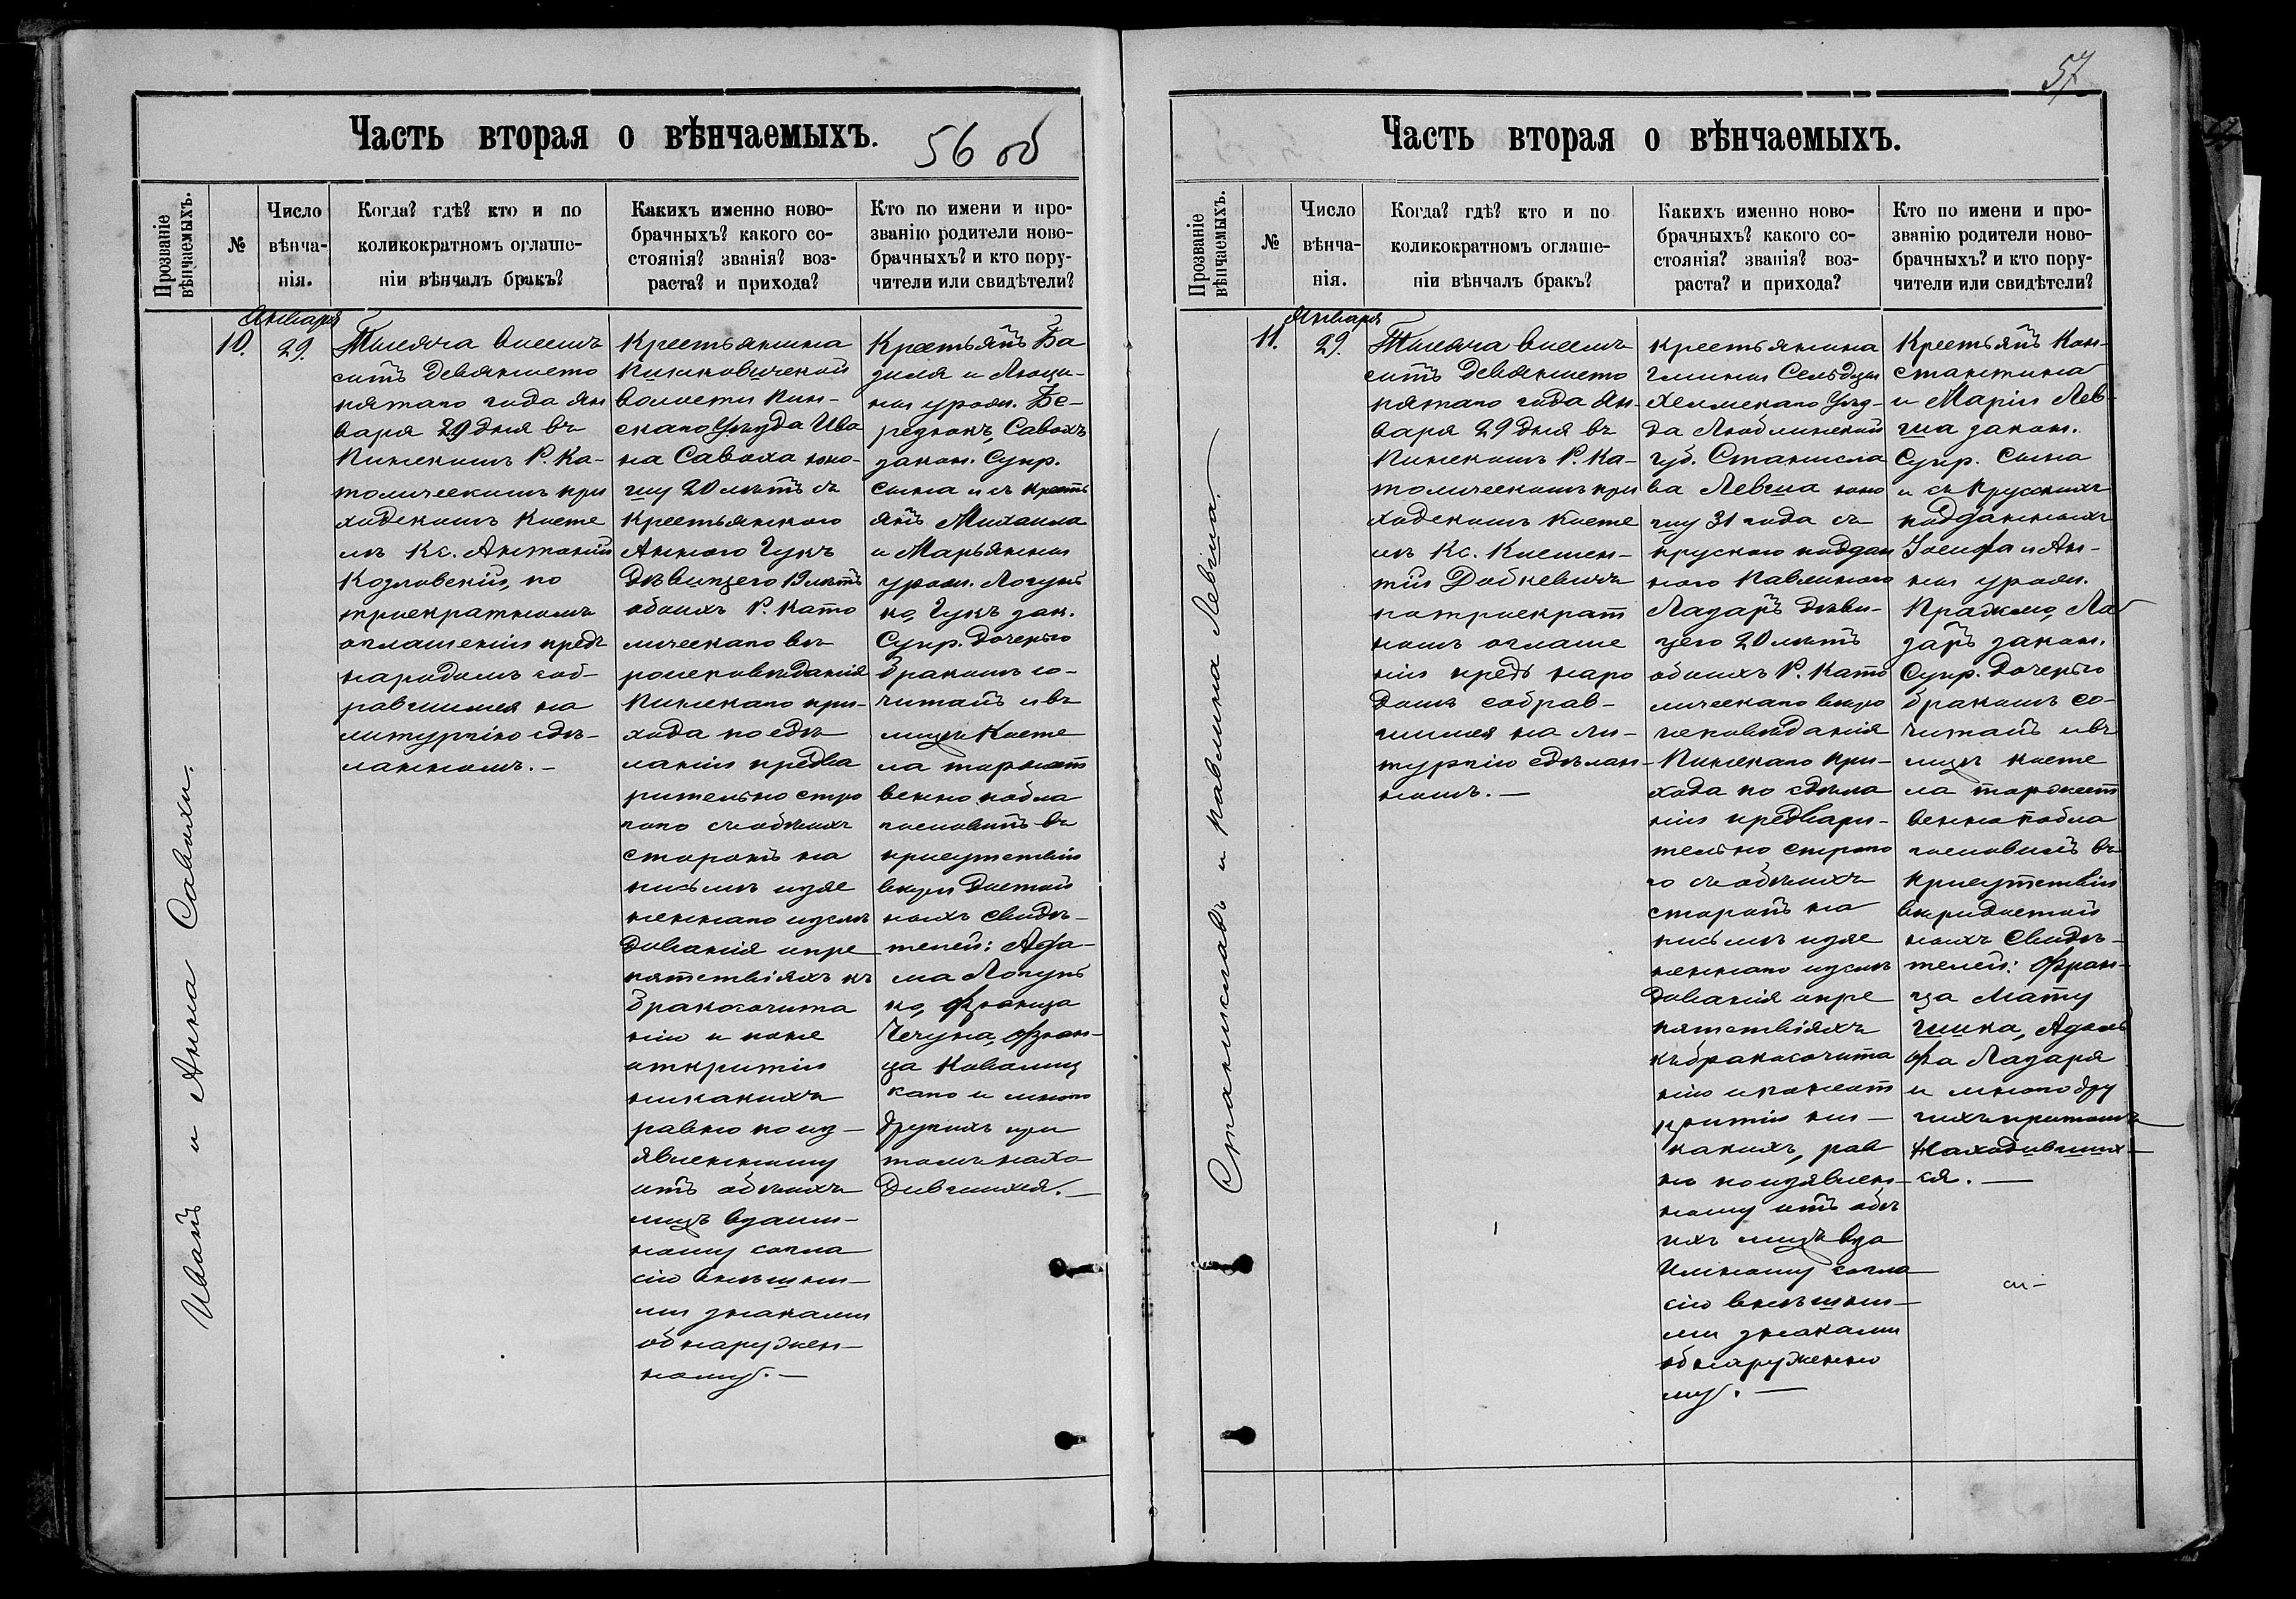 Часть вторая о вѣнчаемыхъ.
56 об
Прозваніе вѣнчаемыхъ.
№
Число вѣнча-нія.
Когда? гдѣ? кто и по
коликократномъ оглаше-
ніи вѣнчалъ бракъ?
Какихъ именно ново-
брачныхъ? какого со-
стоянія? званія? воз-
раста? и прихода?
Кто по имени и про-
званію родители ново-
брачныхъ? и кто пору-
чители или свидѣтели?
Иванъ и Анна Савохи.
10.
Января
29.
Тысяча восемь
сотъ девяносто
пятаго года Ян
варя 29 дня въ
Пинскомъ Р. Ка-
толическомъ при
ходскомъ косте
лѣ Кс. Антоній
Козловскій, по
триекратномъ
оглашеніи предъ
народомъ соб-
равшимся на
литургію сдѣ-
ланномъ. —
Крестьянина
Пинковичской
волости Пин-
скаго Уѣзда Ива
на Савоха юно-
шу 20 лѣтъ съ
Крестьянкою
Анною Гукъ
Дѣвицею 19 лѣтъ
обоихъ Р. Като
лическаго вѣ
роисповѣданія
Пинскаго при-
хода по сдѣ
ланіи предва
рительно стро
гаго съ обѣихъ
сторонъ на
письмѣ изло
женнаго изслѣ
дованія о пре
пятствіяхъ къ
бракосочита
нію и по не
открытіи
никакихъ
равно по из-
явленному
отъ обѣихъ
лицъ взаим-
ному согла
сію внѣшни-
ми знаками
обнаружен-
ному. —
Крестьянъ Ба
зиля и Люци-
ны урожд. Бе-
редюкъ, Савохъ
закон. Супр.
сына и съ крестъ
янъ Михаила
и Марьянны
урожд. Логунь
ко, Гукъ зак.
Супр. дочерью
бракомъ со-
читалъ и въ
лицѣ косте
ла торжест
венно побла
гословилъ въ
присутствіи
вѣродостой
ныхъ свидѣ-
телей: Ада-
ма Логунь
ко, Франца
Чечуна, Фран-
ца Ковалиц
каго и много
другихъ при
томъ нахо
дившихся. —
57
Часть вторая о вѣнчаемыхъ.
Прозваніе вѣнчаемыхъ.
№
Число вѣнча-нія.
Когда? гдѣ? кто и по
коликократномъ оглаше-
ніи вѣнчалъ бракъ?
Какихъ именно ново-
брачныхъ? какого со-
стоянія? званія? воз-
раста? и прихода?
Кто по имени и про-
званію родители ново-
брачныхъ? и кто пору-
чители или свидѣтели?
Станиславъ и Павлина Левша.
11.
Января
29.
Тысяча восемь
сотъ девяносто
пятаго года Ян-
варя 29 дня въ
Пинскомъ Р. Ка-
толическомъ при
ходскомъ косте
лѣ Кс. Клемен-
тій Добкевичъ
по триекрат
номъ оглаше
ніи предъ наро
домъ собрав-
шимся на ли-
тургію сдѣлан-
номъ. —
Крестьянина
Гмины Сельдзи
Хелмскаго Уѣз-
да Люблинской
губ. Станисла
ва Левша юно
шу 31 года съ
прускою поддан
ною Павлиною
Лазаръ дѣви-
цею 20 лѣтъ
обоихъ Р. Като
лическаго вѣро
исповѣданія
Пинскаго при-
хода по сдѣла
ніи предвари-
тельно строга
го съ обѣихъ
сторонъ на
письмѣ изло
женнаго изслѣ
дованія о пре
пятствіяхъ
къ бракосочита
нію и по неот
крытіи ни-
какихъ, рав
но по изявлен-
ному отъ обѣ
ихъ лицъ вза
имному согла
сію внѣшни-
ми знаками
обнаруженно
му. —
Крестьянъ Кон-
стантина
и Маріи Лев-
ша закон.
Супр. сына
и съ прусскихъ
подданныхъ
Іосифа и Ан-
ны урожд.
Праджмо, Ла
заръ закон.
Супр. дочерью
бракомъ со-
читалъ и въ
лицѣ косте
ла торжест
венно побла
гословилъ въ
присутствіи
вѣродостой
ныхъ свидѣ-
телей: Фран-
ца Мату
шика, Адоль
фа Лазаря
и много дру
гихъ притомъ
находивших-
ся. —